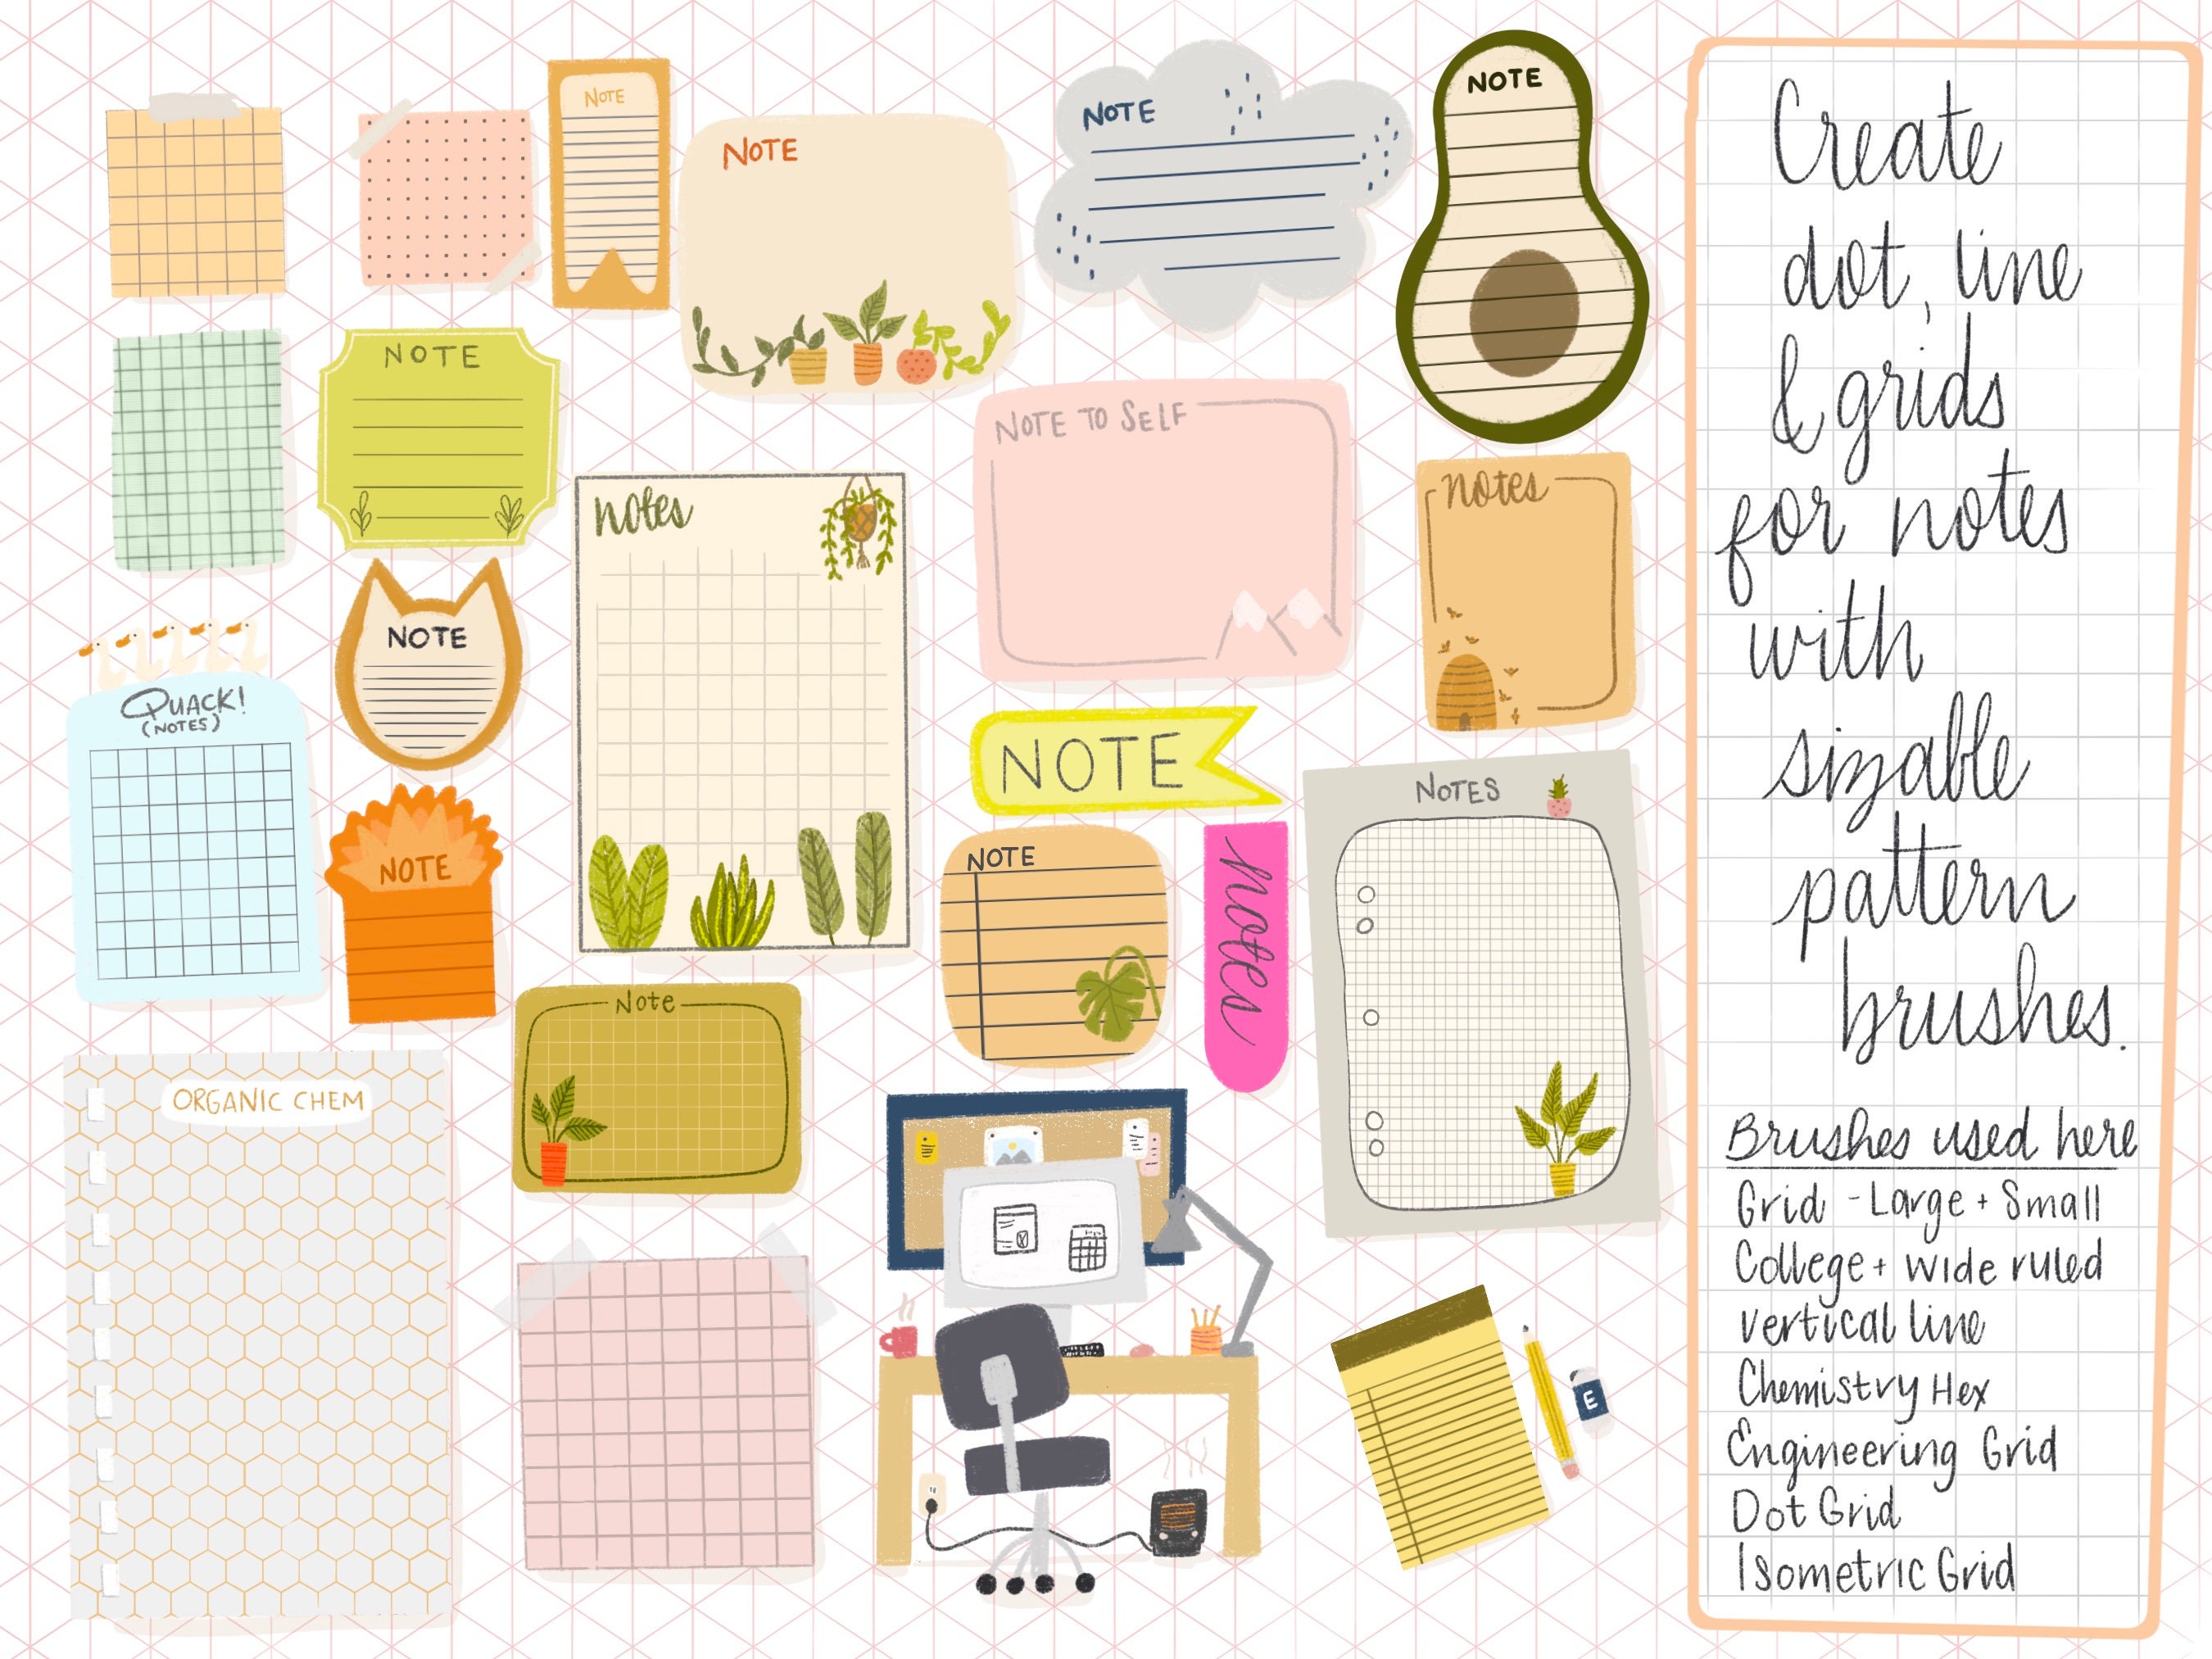 NOTE
NOTE
NOTE
NOTE
NOTE
NOTE TO SELF
notes
notes
NOTE
QUACK!
(NOTES)
NOTE
NOTE
NOTES
NOTE
notes
Note
ORGANIC CHEM
E
Create
dot, line
& grids
for notes
with
sizable
pattern
brushes.
Brushes used here
Grid - Large + Small
College + wide ruled
vertical line
Chemistry Hex
Engineering Grid
Dot Grid
Isometric Grid